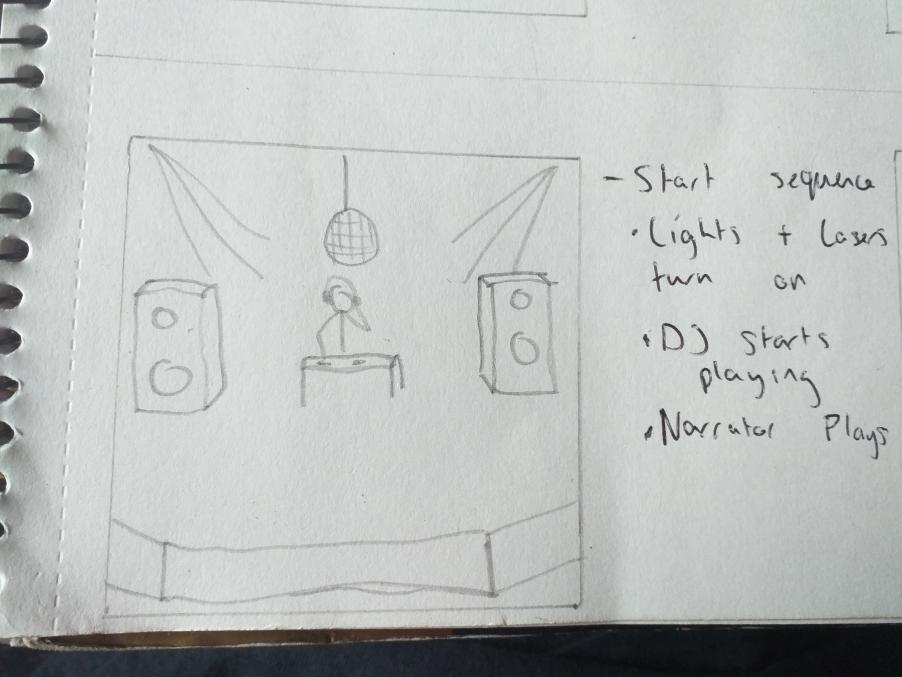 - Start sequence
• Lights + Lasers
turn on
• DJ starts
playing
• Narrator Plays